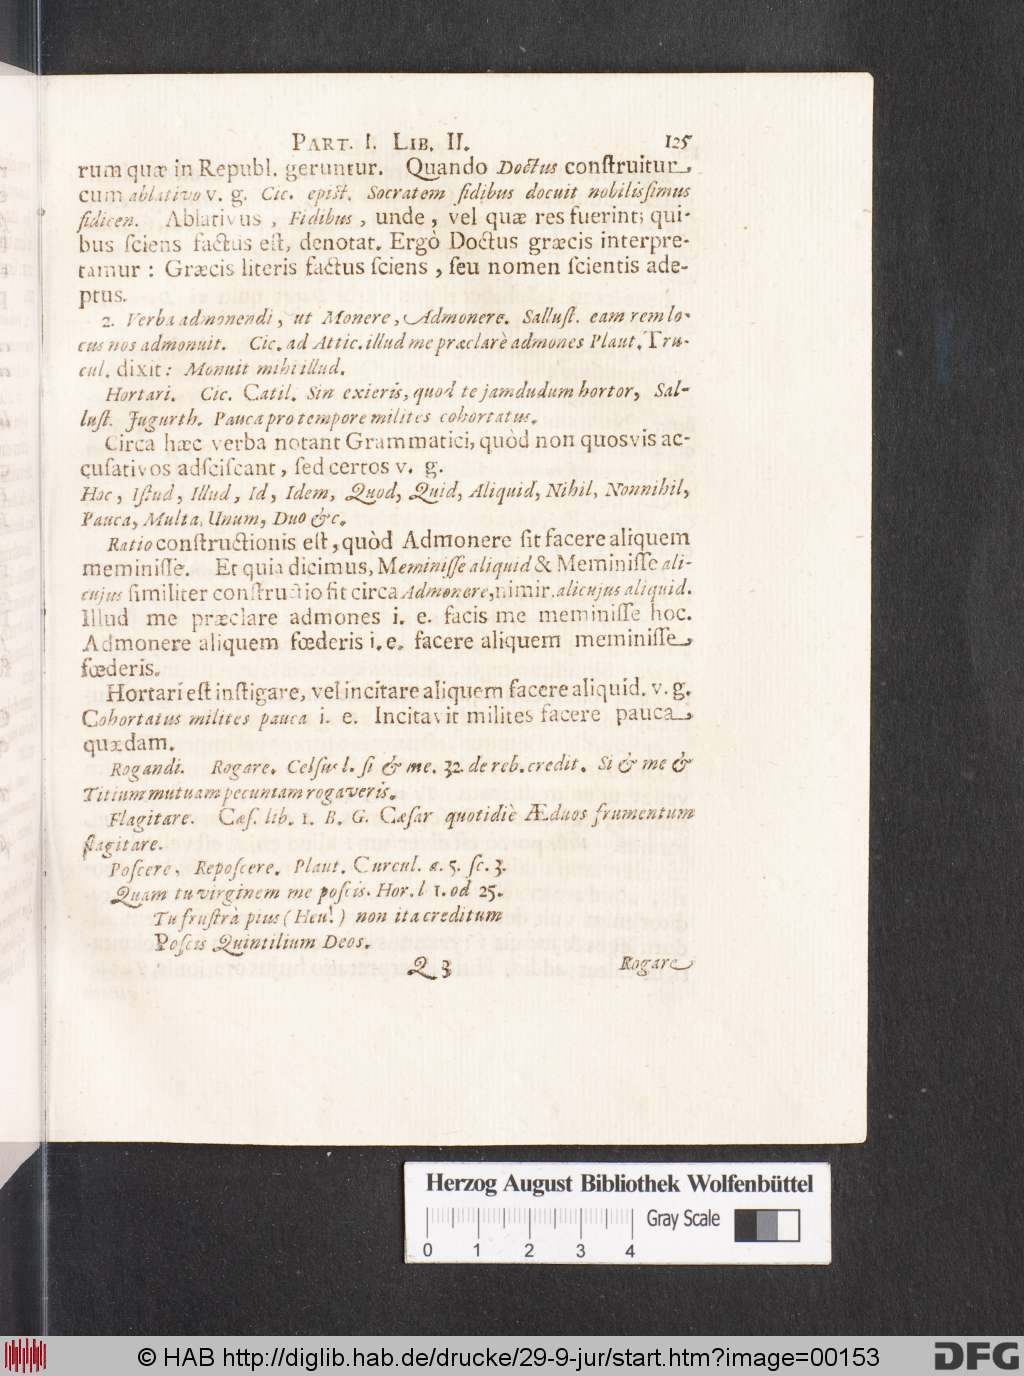 PART. I. LIB. II. 125
rum quæ in Republ. geruntur. Quando Doctus construitur
cum ablativo v. g. Cic. epist. Socratem fidibus docuit nobilissimus
fidicen. Ablativus, Fidibus, unde, vel quæ res fuerint; qui-
bus sciens factus est, denotat. Ergò Doctus græcis interpre-
tamur: Græcis literis factus sciens, seu nomen scientis ade-
ptus.
2. Verba admonendi, ut Monere, Admonere. Sallust. eam rem lo-
cus nos admonuit. Cic. ad Attic. illud me præclarè admones Plaut. Tru-
cul. dixit: Monuit mihi illud.
Hortari. Cic. Catil. Sin exieris, quod te jamdudum hortor, Sal-
lust. Jugurth. Pauca pro tempore milites cohortatus.
Circa hæc verba notant Grammatici, quòd non quosvis ac-
cusativos adsciscant, sed certos v. g.
Hoc, Istud, Illud, Id, Idem, Quod, Quid, Aliquid, Nihil, Nonnihil,
Pauca, Multa, Unum, Duo &c.
Ratio constructionis est, quòd Admonere sit facere aliquem
meminisse. Et quia dicimus, Meminisse aliquid & Meminisse ali-
cujus similiter constructio fit circa Admonere, nimir. alicujus aliquid.
Illud me præclare admones i. e. facis me meminisse hoc.
Admonere aliquem fœderis i. e. facere aliquem meminisse
fœderis.
Hortari est instigare, vel incitare aliquem facere aliquid. v. g.
Cohortatus milites pauca i. e. Incitavit milites facere pauca
quædam.
Rogandi. Rogare. Celsus l. si & me. 32. de reb. credit. Si & me &
Titium mutuam pecuniam rogaveris.
Flagitare. Cæs. lib. 1. B. G. Cæsar quotidiè Æduos frumentum
flagitare.
Poscere, Reposcere. Plaut. Curcul. a. 5. sc. 3.
Quam tu virginem me poscis. Hor. l 1. od 25.
Tu frustrà pius (Heu!) non ita creditum
Poscis Quintilium Deos.
Q 3 Rogare
Herzog August Bibliothek Wolfenbüttel
Gray Scale
0 1 2 3 4
© HAB http://diglib.hab.de/drucke/29-9-jur/start.htm?image=00153
DFG